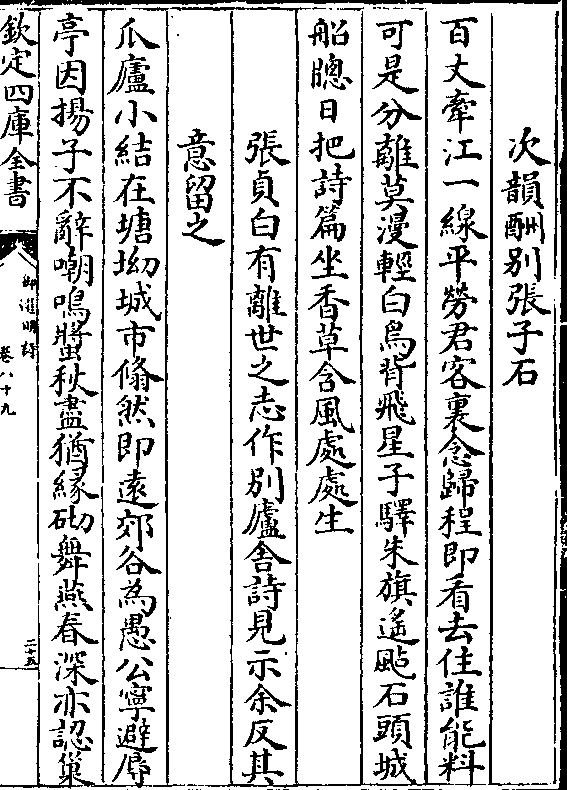 次韻酬别張子石
百丈牽江一線平勞君客裏念歸程即看去住誰能料
可是分離莫漫輕白鳥背飛星子驛朱旗遙颭石頭城
船牕日把詩篇坐香草含風處處生
張貞白有離世之志作别廬舍詩見示余反其
意留之
瓜廬小結在塘坳城市翛然即遠郊谷為愚公寧避辱
亭因揚子不辭嘲鳴螿秋盡猶緣砌舞燕春深亦認巢
欽定四庫全書
御選明詩
卷八十九
二十五